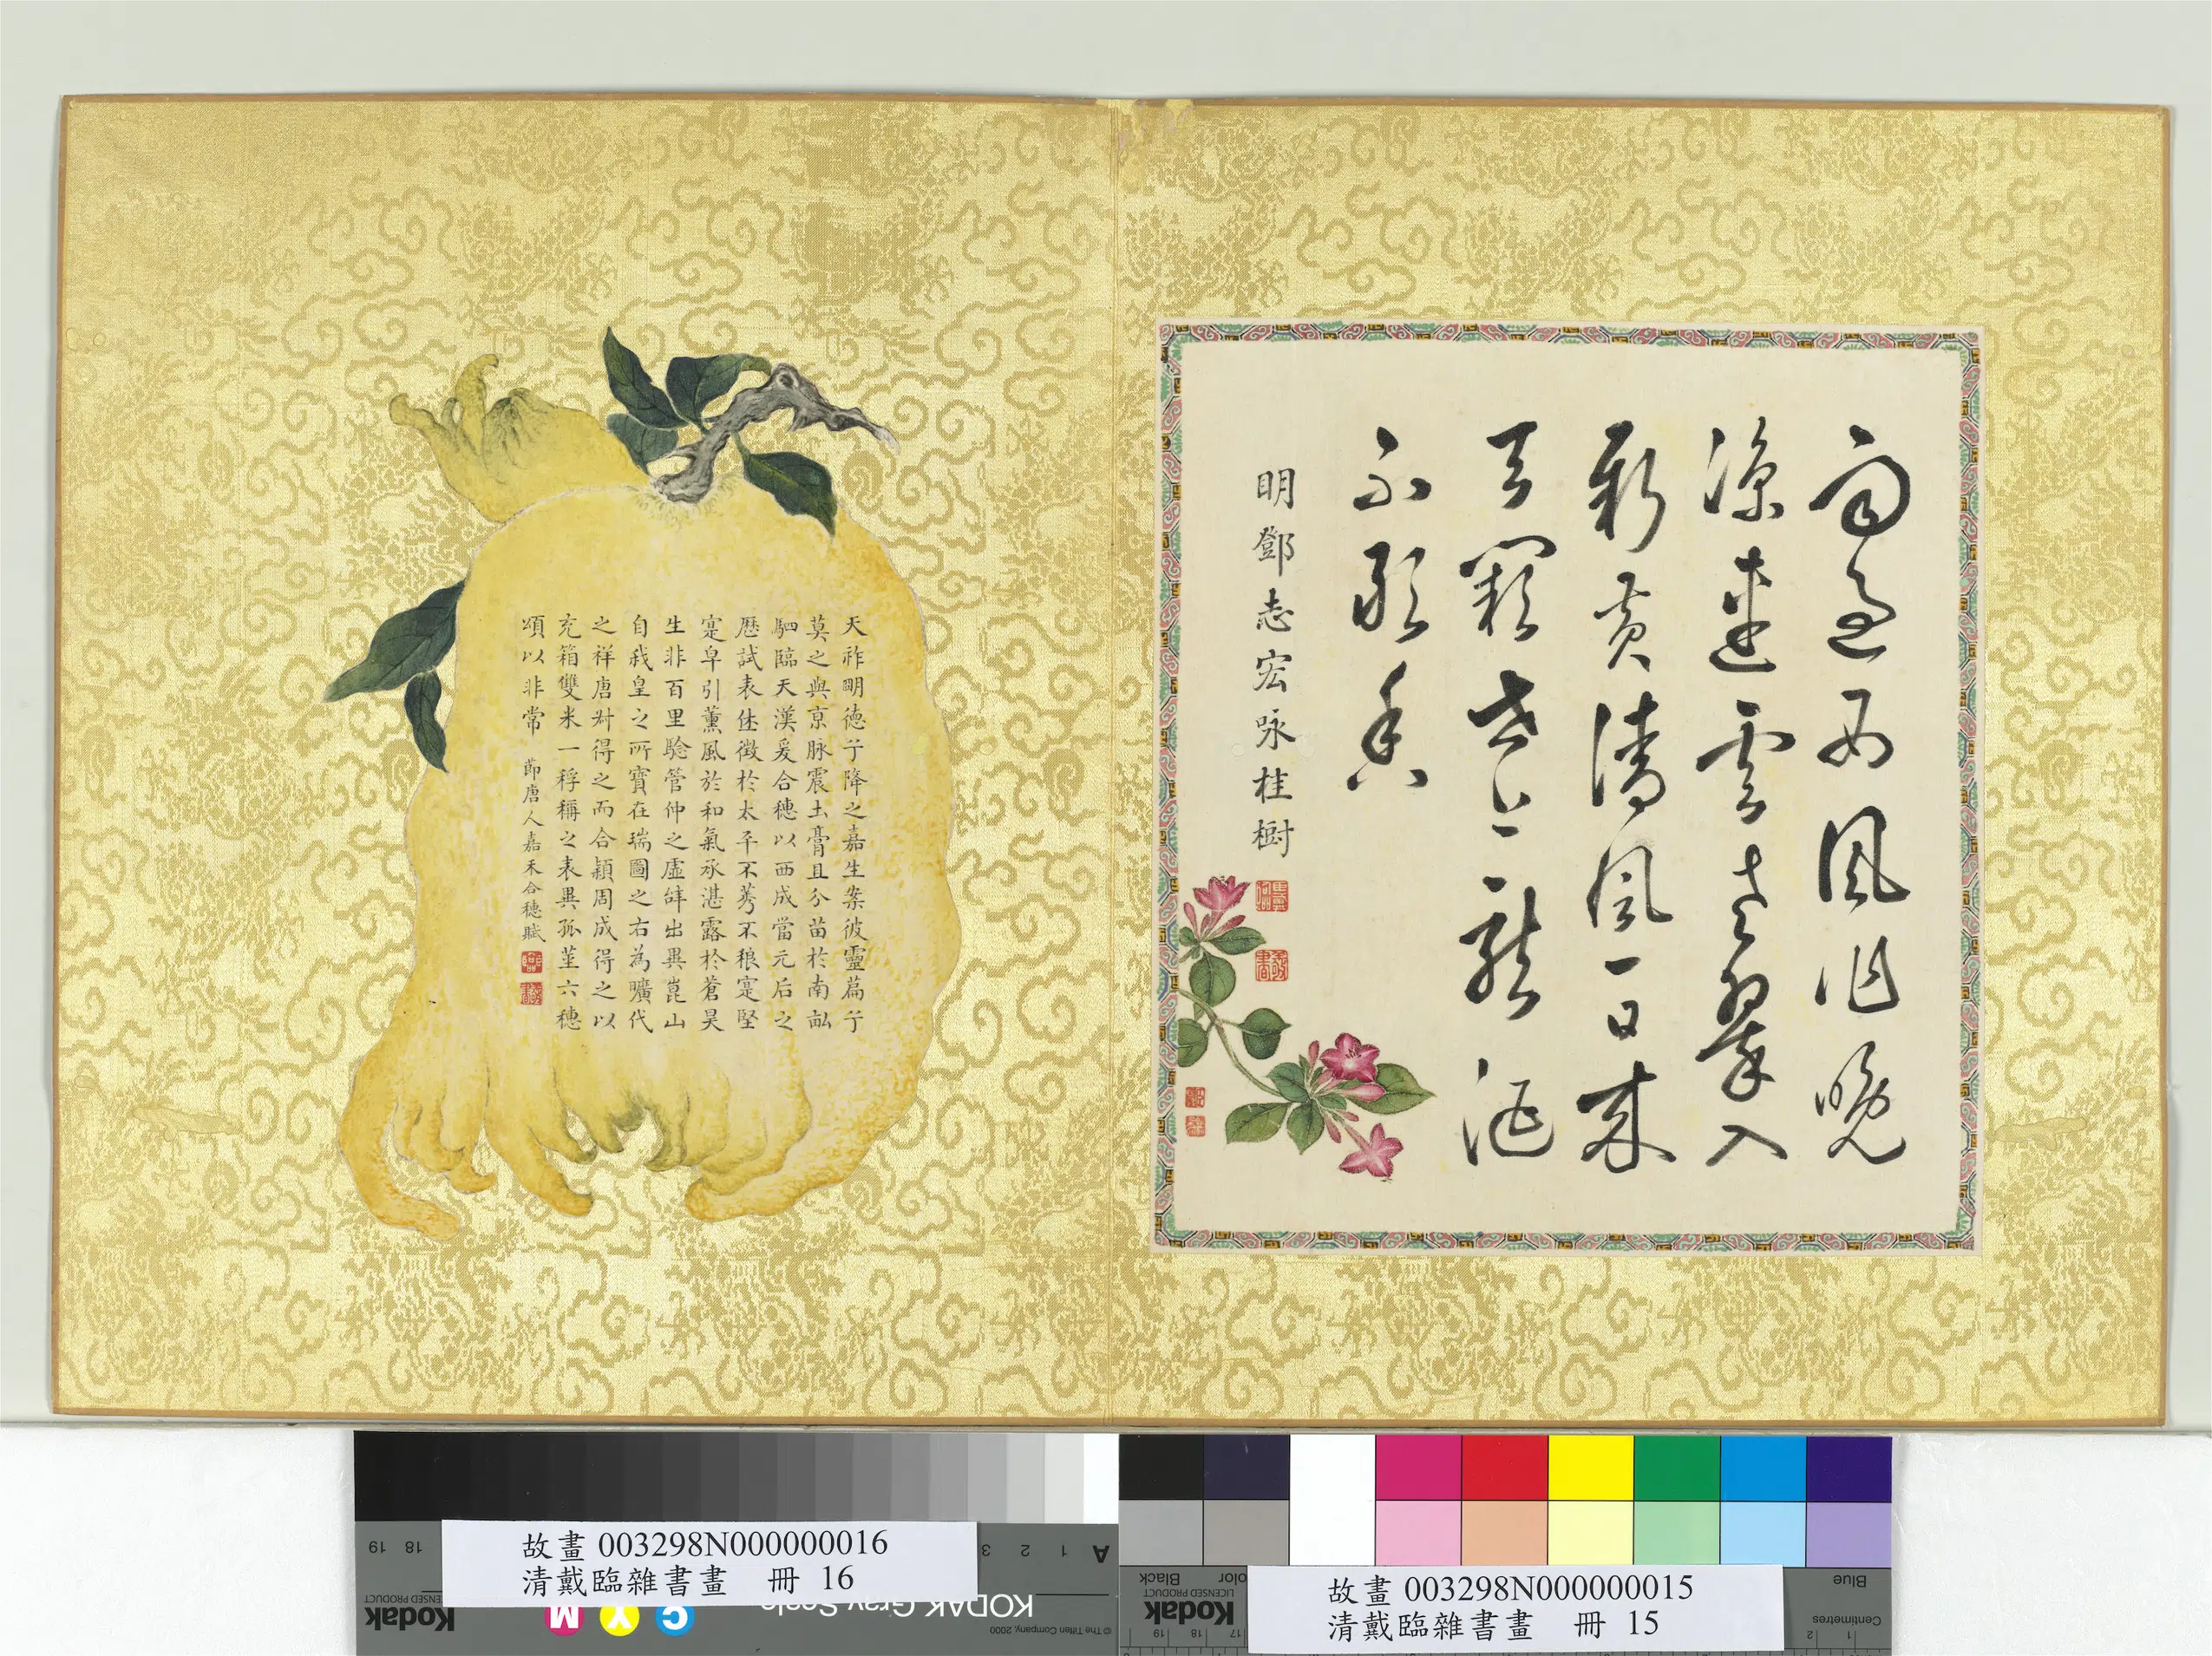 雨過西風作晚
涼連雲老翠入
新黃清風一日來
天闕世上龍涎
不敢香
明鄧志宏咏桂樹
天祚明德兮降之嘉生案彼靈篇兮
莫之與京脉震土膏且分苗於南畝
駟臨天漢爰合穗以西成當元后之
歷試表休徵於太平不莠不稂寔堅
寔皁引薰風於和氣承湛露於蒼昊
生非百里驗管仲之虛辭出異崑山
自我皇之所寶在瑞圖之右為曠代
之祥唐叔得之而合穎周成得之以
充箱雙米一稃稱之表異孤莖六穗
頌以非常 節唐人嘉禾合穗賦
故畫 003298N000000016
清戴臨雜書畫 冊 16
故畫 003298N000000015
清戴臨雜書畫 冊 15
A 1 2 3 18 19
KODAK Gray Scale
Kodak
LICENSED PRODUCT
C Y M
© The Tiffen Company, 2000
Black
Blue
Kodak
LICENSED PRODUCT
Centimetres
1 2 17 18 19